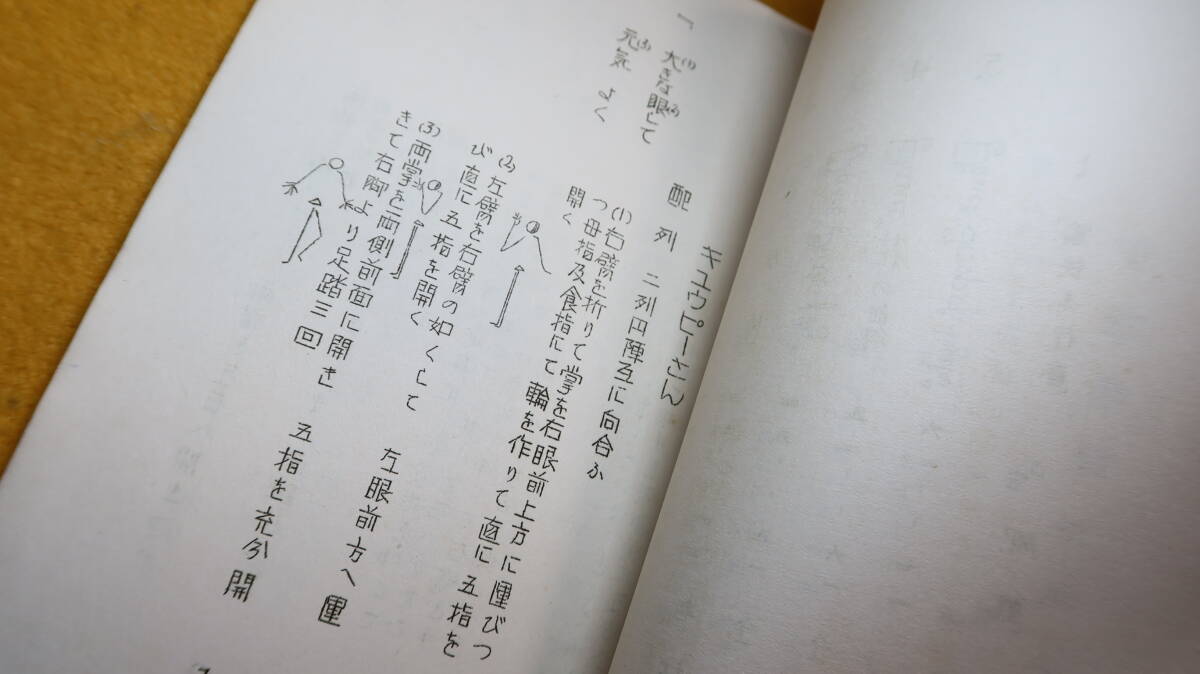 キユウピーさん
配列 二列円陣互に向合ふ
「 大きな眼して
(1) (2)
元気よく
(3)
(1) 右臂を折りて掌を右眼前上方に運びつ
つ母指及食指にて輪を作りて直に五指を
開く
(2) 左臂を右臂の如くして 左眼前方へ運
び直に五指を開く
(3) 両掌を両側前面に開き 五指を充分開
きて右脚より足踏三回